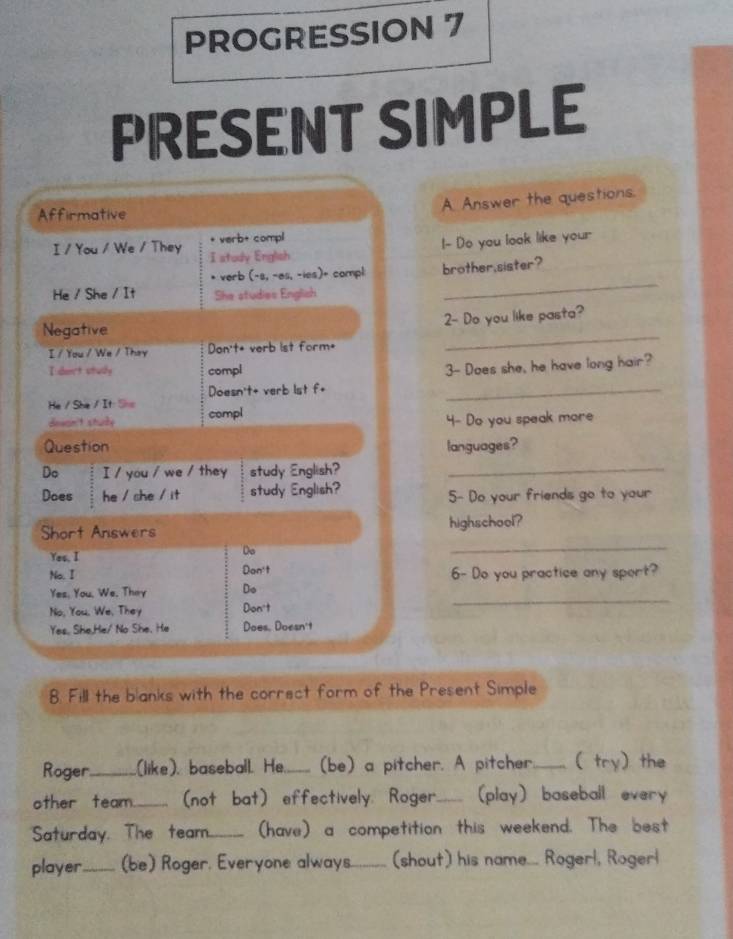 PROGRESSION 7
PRESENT SIMPLE
Affirmative
I / You / We / They
+ verb+ compl
I study English
He / She / It
+ verb (-s, -es, -ies)+ compl
She studies English
Negative
I / You / We / They
I don't study
Don't+ verb 1st form+
compl
He / She / It She
doesn't study
Doesn't+ verb 1st f+
compl
Question
Do I / you / we / they study English?
Does he / she / it study English?
Short Answers
Yes, I Do
No, I Don't
Yes, You, We, They Do
No, You, We, They Don't
Yes, She,He/ No She, He Does, Doesn't
A. Answer the questions.
1- Do you look like your
brother,sister?
2- Do you like pasta?
3- Does she, he have long hair?
4- Do you speak more
languages?
5- Do your friends go to your
highschool?
6- Do you practice any sport?
B. Fill the blanks with the correct form of the Present Simple
Roger______(like). baseball. He____ (be) a pitcher. A pitcher_____ ( try) the
other team_____ (not bat) effectively. Roger____ (play) baseball every
Saturday. The team_____ (have) a competition this weekend. The best
player_____ (be) Roger. Everyone always_____ (shout) his name... Roger!, Roger!